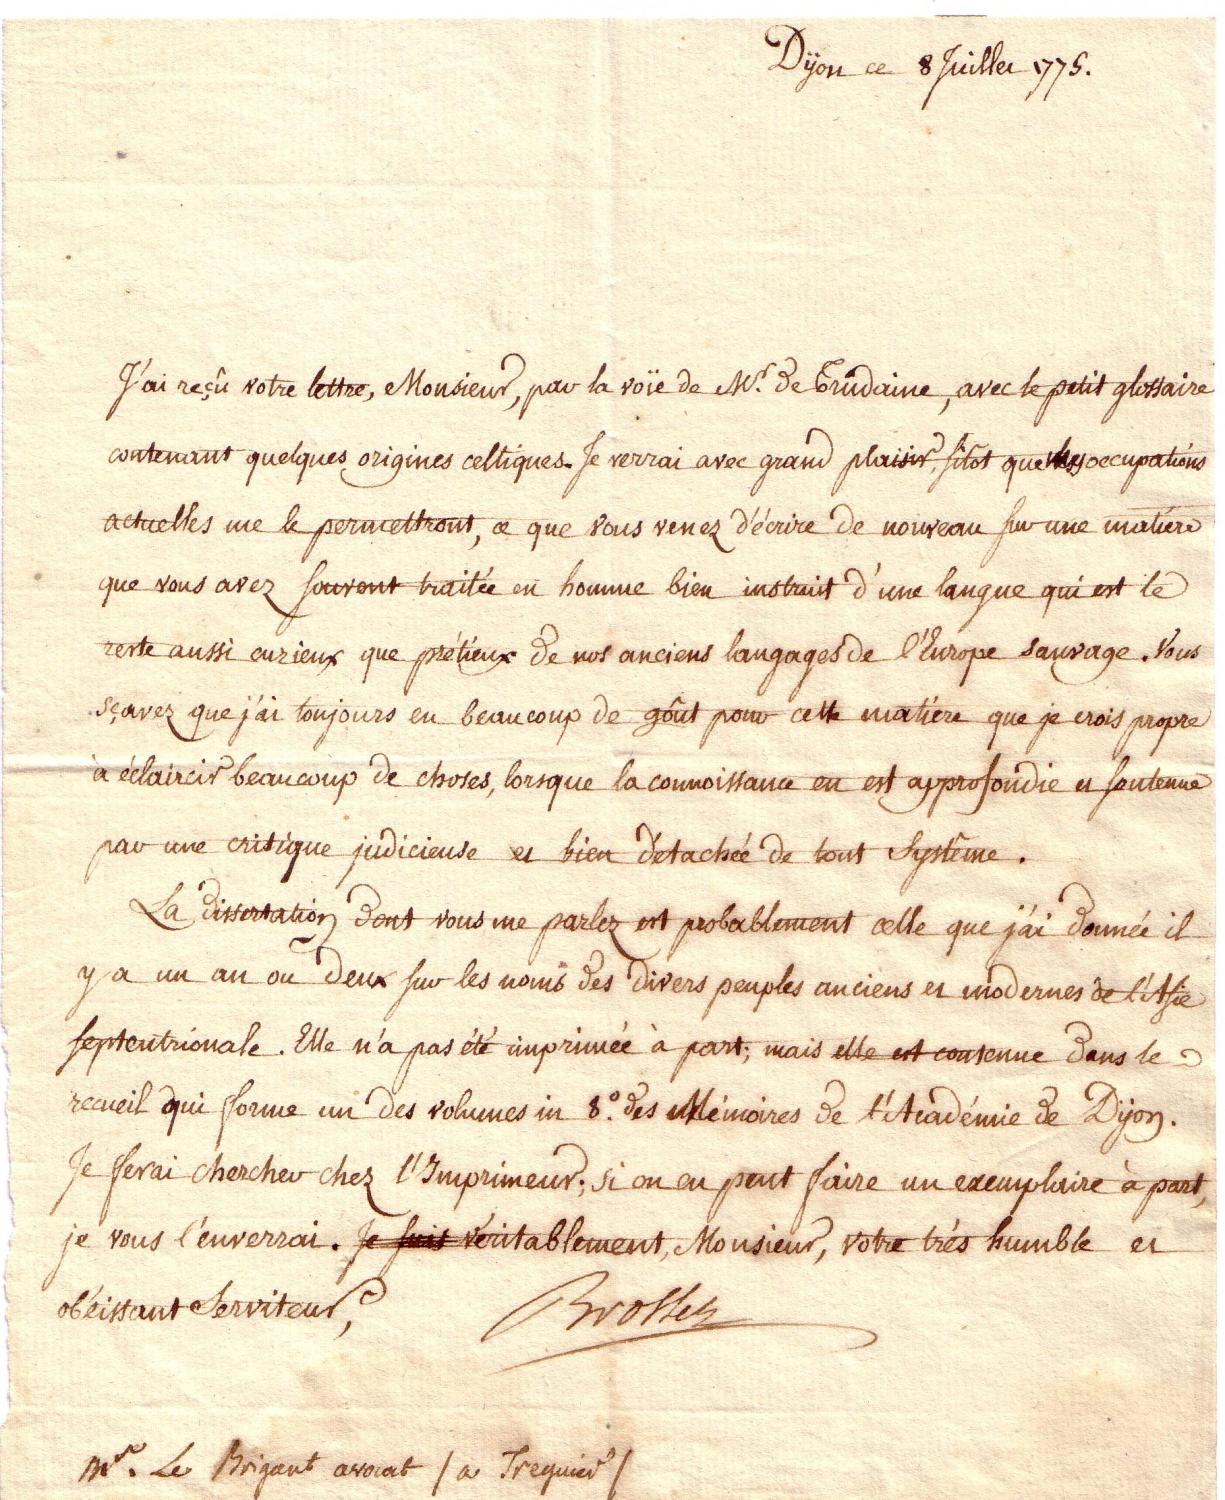 Dijon ce 8 Juillet 1775.
J'ai reçû votre lettre, Monsieur, par la voïe de Mr. de Trudaine, avec le petit glossaire
contenant quelques origines celtiques. Je verrai avec grand plaisir, sitot que mes occupations
actuelles me le permettront, ce que vous venez d'écrire de nouveau sur une matiere
que vous avez souvent traitée en homme bien instruit d'une langue qui est le
reste aussi curieux que prétieux de nos anciens langages de l'Europe sauvage. Vous
sçavez que j'ai toujours eu beaucoup de goût pour cette matiére que je crois propre
à éclaircir beaucoup de choses, lorsque la connoissance en est approfondie et soutenue
par une critique judicieuse et bien détachée de tout Systême.
La dissertation dont vous me parlez est probablement celle que j'ai donnée il
y a un an ou deux sur les noms des divers peuples anciens et modernes de l'Asie
septentrionale. Elle n'a pas été imprimée à part; mais elle est contenue dans le
recueil qui forme un des volumes in 8.o des Mémoires de l'Académie de Dijon.
Je ferai chercher chez l'Imprimeur; si on en peut faire un exemplaire à part,
je vous l'enverrai. Je suis véritablement, Monsieur, votre trés humble et
obéissant Serviteur,
Brosses
Mr. Le Brigant avocat / a Treguier /